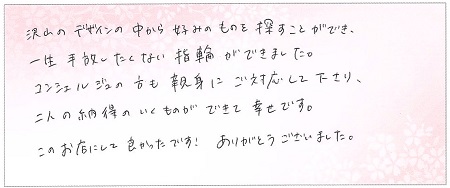 沢山のデザインの中から好みのものを探すことができ、
一生手放したくない指輪ができました。
コンシェルジュの方も親身にご対応して下さり、
二人の納得のいくものができて幸せです。
このお店にして良かったです! ありがとうございました。